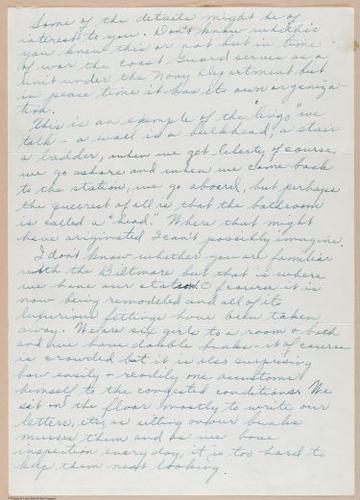 Some of the details might be of
interest to you. Don't know whether
you knew this or not but in time
of war the Coast Guard serves as a
unit under the Navy Department but
in peace time it has its own organiza-
tion.
This is an example of the "lingo" we
talk - a wall is a bulkhead, a stair
a ladder, when we get liberty of course
we go ashore and when we come back
to the station, we go aboard, but perhaps
the queerest of all is that the bathroom
is called a "head." Where that might
have originated I can't possibly imagine.
I don't know whether you are familiar
with the Biltmore but that is where
we have our station. Of course it is
now being remodeled and all of its
luxurious fittings have been taken
away. We are six girls to a room & bath
and we have double bunks - it of course
is crowded but it is also surprising
how easily & readily one accustoms
himself to the congested conditions. We
sit on the floor mostly to write our
letters, etc, as sitting on our bunks
musses them and as we have
inspection every day, it is too hard to
keep them neat looking.